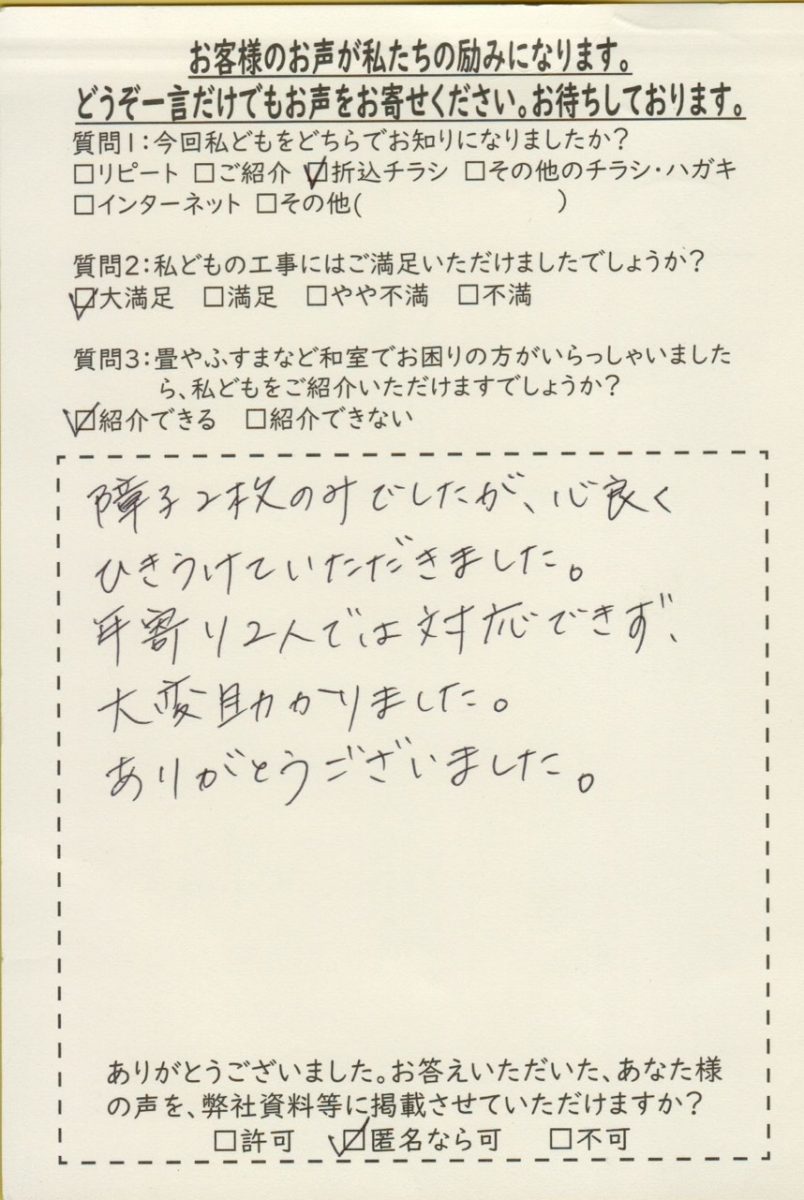 お客様のお声が私たちの励みになります。
どうぞ一言だけでもお声をお寄せください。お待ちしております。
質問1:今回私どもをどちらでお知りになりましたか?
□リピート □ご紹介 ☑折込チラシ □その他のチラシ・ハガキ
□インターネット □その他( )
質問2:私どもの工事にはご満足いただけましたでしょうか?
☑大満足 □満足 □やや不満 □不満
質問3:畳やふすまなど和室でお困りの方がいらっしゃいました
ら、私どもをご紹介いただけますでしょうか?
☑紹介できる □紹介できない
障子2枚のみでしたが、心良く
ひきうけていただきました。
年寄り2人では対応できず、
大変助かりました。
ありがとうございました。
ありがとうございました。お答えいただいた、あなた様
の声を、弊社資料等に掲載させていただけますか?
□許可 ☑匿名なら可 □不可